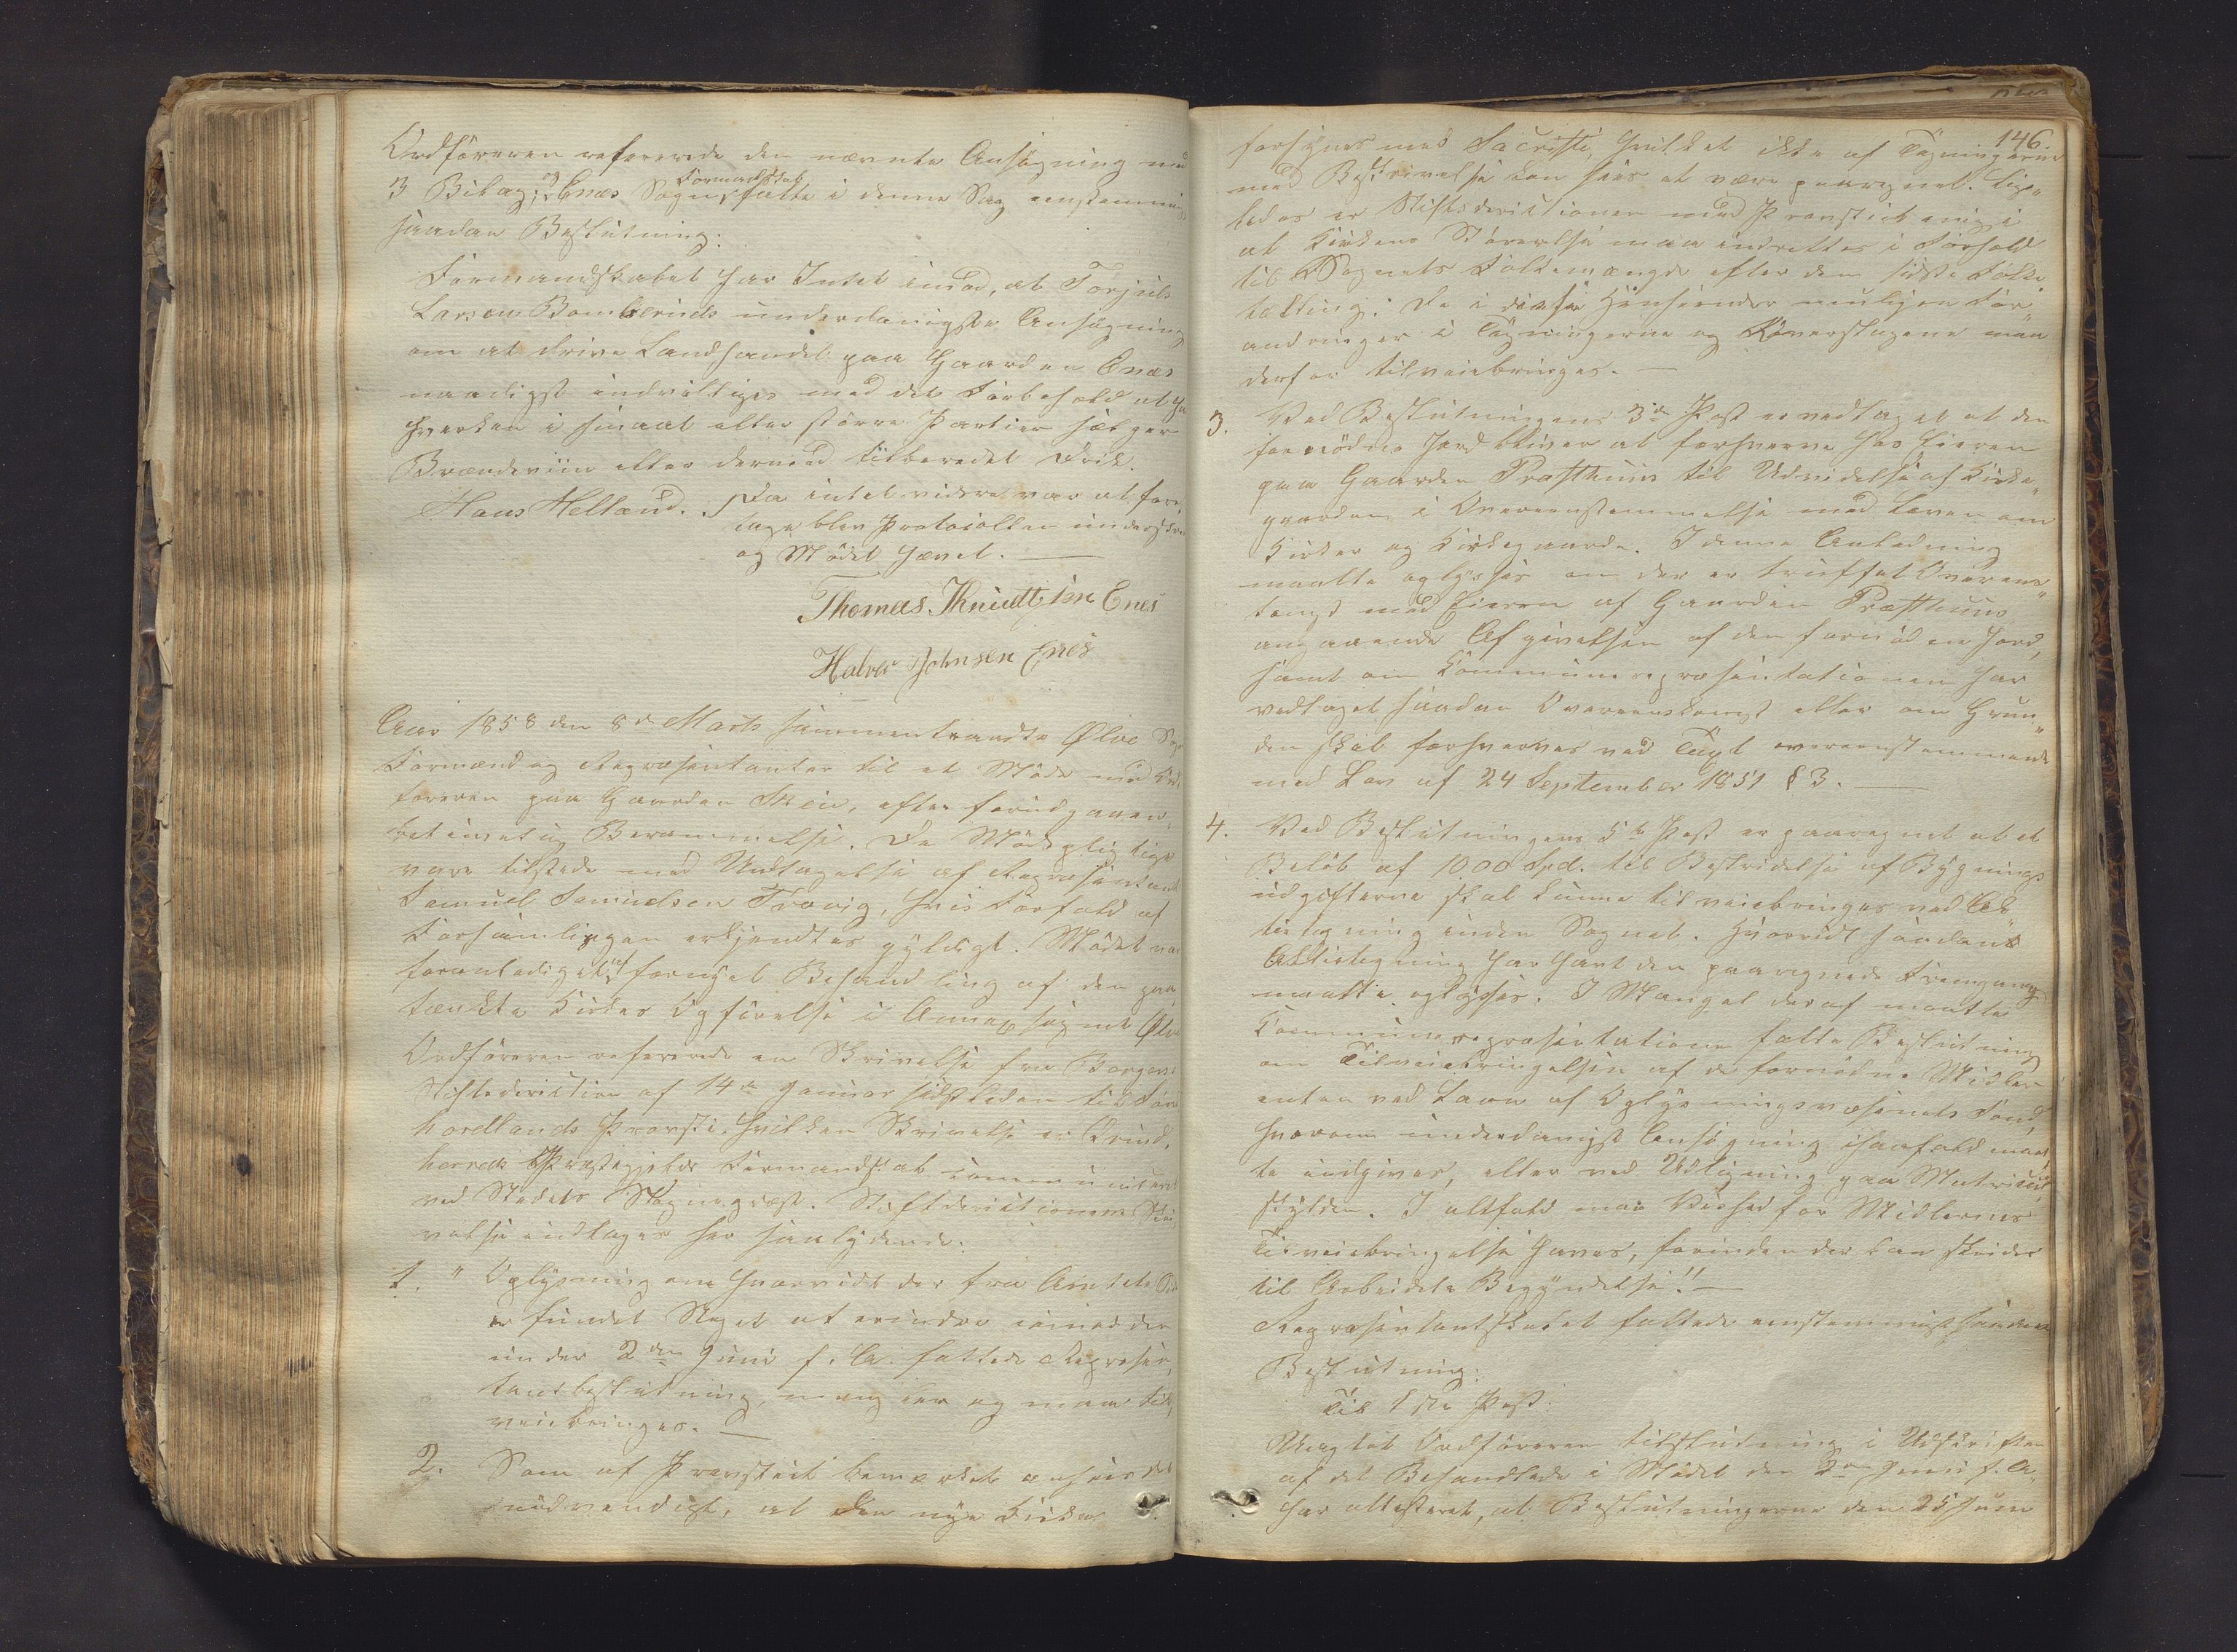 Ordföreren refererede den nævnte Ansögning med
3 Bilag; og Enæs Sogns Formandskab fatte i denne Sag eenstemmig
saadan Beslutning:
Formandskabet har Intet imod, at Torjuls
Larsen Bomlerinds underdanigste Ansögning
om at drive Landhandel paa Gaarden Enæs
naadigst indvilliges med det Forbehold at han
hverken i smaat eller större Partier sælger
Brændeviin eller dermed tilberedet Drik.
Hans Helland. Da intet videre var at fore-
tage blev Protocollen underskre
og Mödet hævet. —
Thomas Knudtsen Enes
Halvor Johnsen Enes
Aar 1858 den 8de Marts sammentraadte Ølve Sogns
Formænd og Repræsentanter til et Möde med Ord-
foreren paa Gaarden Skeie, efter foregaaen-
betimelig Berammelse. De Mödepligtige
vare tilstede med Undtagelse af Repræsentant
Samuel Samuelsen Trovig, hvis Forfald af
Forsamlingen erkjendtes gyldigt. Mödet var
foranlediget af fornyet Behandling af den paa-
tænkte Kirkes Opförelse i Annexsognet Ølve
Ordföreren refererede en Skrivelse fra Bergens
Stiftsdirektion af 14de Januar sidstleden til Sönd-
hordlands Provsti, hvilken Skrivelse er Qvind-
herreds Præstegjelds Formandskab communiceret
ved Stedets Sognepræst. Stiftdirektionens Skri-
velse indtages her saalydende:
1. " Oplysning om hvorvidt der fra Amtets Side
er fundet Noget at erindre imod den
under 2den Juni f. A. fattede Repræsen-
tantbeslutning, mangler og maa til-
veiebringes. —
2. Som af Provstiet bemærket ansees det
nödvendigt, at den nye Kirke
146.
forsynes med Sacristi, hvilket ikke af Tegningerne
med Beskrivelse kan sees at være paaregnet. Lige-
ledes er Stiftsdirektionen med Provstiet enig i
at Kirkens Störrelse maa indrettes i Forhold
til Sognets Folkemængde efter den sidste Folke-
tælling. De i disse Henseender mulige For-
andringer i Tegningerne og Overslagene maa
derfor tilveiebringes. —
3. Ved Beslutningens 3die Post er vedtaget at den
fornödne Jord bliver at forhverve hos Eieren
paa Gaarden Præsthuus til Udvidelse af Kirke-
gaarden i Overeenstemmelse med Loven om
Kirker og Kirkegaarde. I denne Anledning
maatte oplyses om der er truffet Overens-
komst med Eieren af Gaarden Præsthuus
angaaende Afgivelsen af den fornödne Jord,
samt om Communerepræsentationen har
vedtaget saadan Overeenskomst eller om Grun-
den skal forhverves ved Taxt overeenstemmende
med Lov af 24 September 1851 § 3. —
4. Ved Beslutningens 5te Post er paaregnet at et
Belöb af 1000 Spd. til Bestridelse af Bygnings
udgifterne skal kunne tilveiebringes ved Ak-
tietegning inden Sognet. Hvorvidt saadan
Aktietegning har havt den paaregnede Fremgang
maatte oplyses. I Mangel deraf maatte
Communerepræsentationen fatte Beslutning
om Tilveiebringelsen af de fornödne Midler
enten ved Laan af Oplysningsvæsenets Fond,
hvorom underdanigst Ansögning isaafald maat-
te indgives, eller ved Udligning paa Matricul-
skylden. I altfald maa Vished for Midlernes
Tilveiebringelse haves, forinden der kan skrides
til Arbeidets Begyndelse." —
Repræsentantskabet fattede eenstemmigst saadan
Beslutning:
Til 1ste Post:
Uagtet Ordföreren tilslutning i Udskriften
af det Behandlede i Mödet den 2den Juni f. A.
har attesteret, at Beslutningerne den 25 Juni